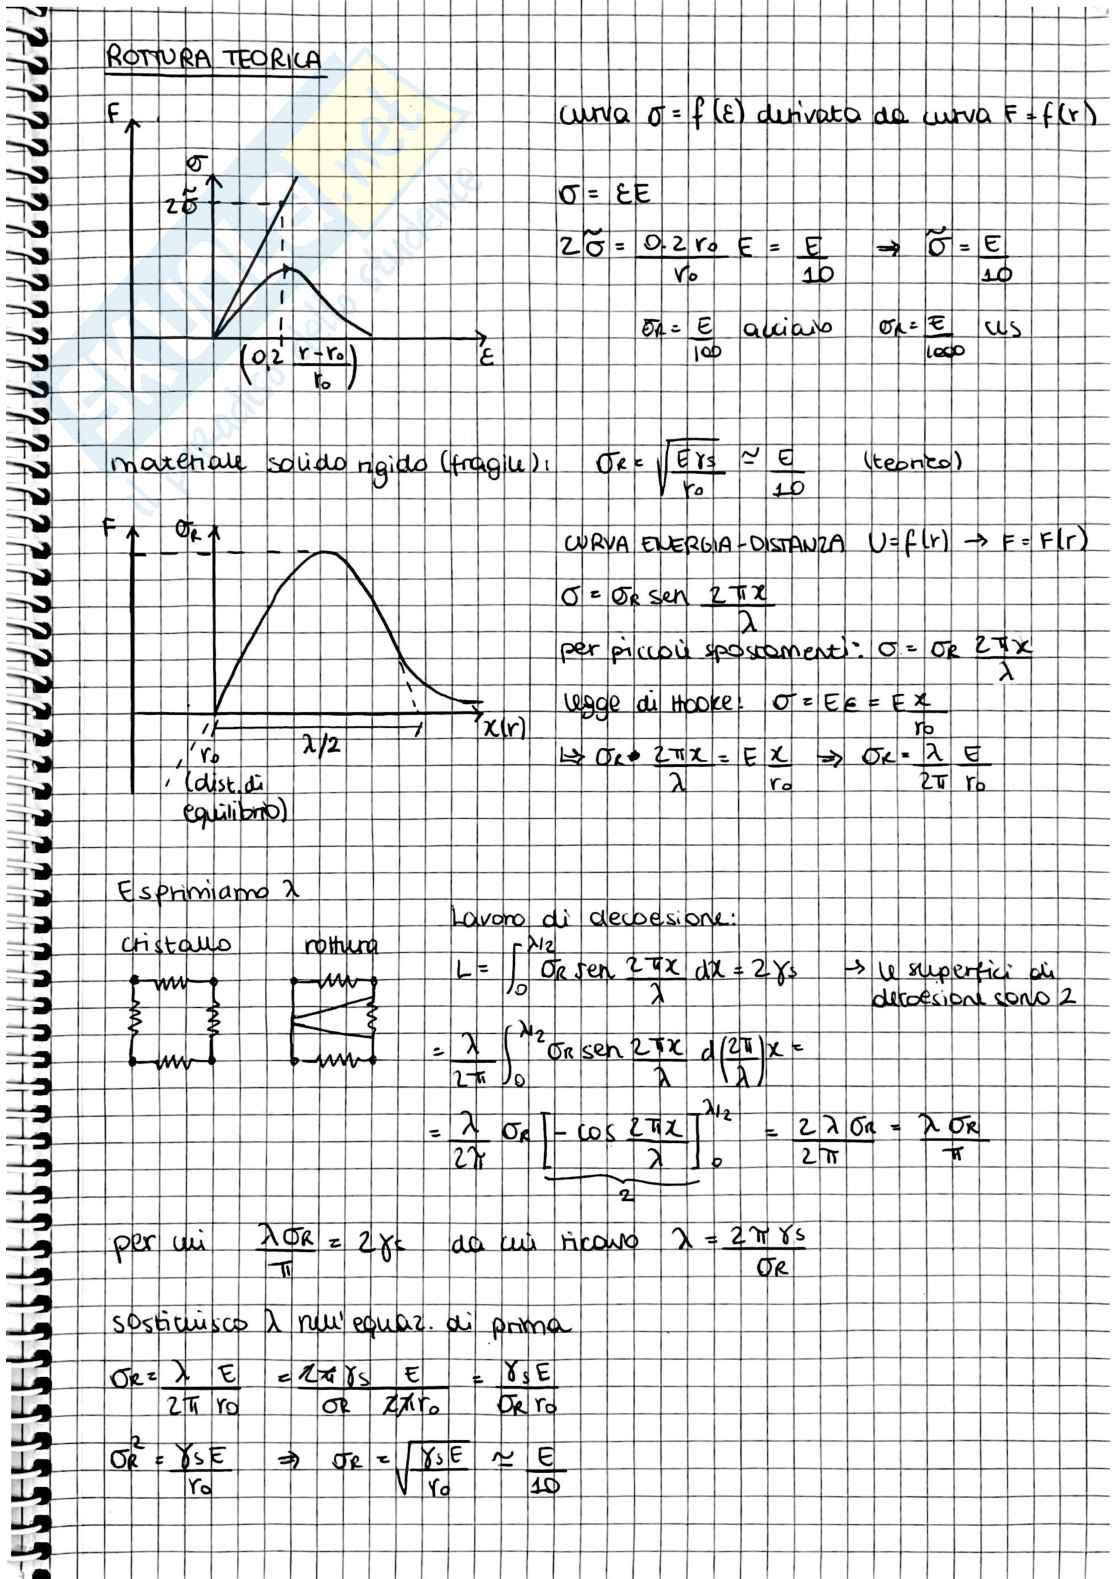 ROTTURA TEORICA
F
σ
2σ̃
(0,2 (r-r₀)/r₀)
ε
curva σ = f(ε) derivata da curva F = f(r)
σ = εE
2σ̃ = (0.2 r₀)/r₀ E = E/10 ⇒ σ̃ = E/10
σR = E/100 acciaio σR = E/1000 cls
materiale solido rigido (fragile): σR = √(Eγs/r₀) ≃ E/10 (teorico)
F
σR
r₀
(dist. di
equilibrio)
λ/2
x(r)
CURVA ENERGIA-DISTANZA U=f(r) → F = F(r)
σ = σR sen 2πx/λ
per piccoli spostamenti: σ = σR 2πx/λ
legge di Hooke: σ = Eε = E x/r₀
↳ σR • 2πx/λ = E x/r₀ ⇒ σR = λ/2π E/r₀
Esprimiamo λ
cristallo
rottura
Lavoro di decoesione:
L = ∫₀^(λ/2) σR sen 2πx/λ dx = 2γs → le superfici di
decoesione sono 2
= λ/2π ∫₀^(λ/2) σR sen 2πx/λ d(2π/λ)x =
= λ/2π σR [-cos 2πx/λ]₀^(λ/2) = 2λσR/2π = λσR/π
2
per cui λσR/π = 2γs da cui ricavo λ = 2πγs/σR
sostituisco λ nell'equaz. di prima
σR = λ/2π E/r₀ = 2πγs/σR E/2πr₀ = γsE/σR r₀
σR² = γsE/r₀ ⇒ σR = √(γsE/r₀) ≃ E/10
SKUOLA.net
il paradiso dello studente